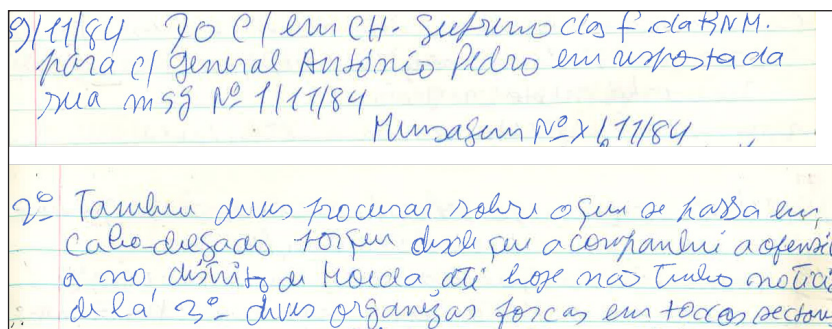 9/11/84 Do C/ em CH. Supremo das f. da RNM.
para c/ general António Pedro em resposta da
sua msg Nº 1/11/84
Mensagem Nº X 11/84
2º Tambem deves procurar sobre oque se passa em
cabo-delgado porque desde que acompanhei a ofensi
a no distrito de Moeda, até hoje não Tenho notici
de lá 3º deves organizar forcas em todos sectore